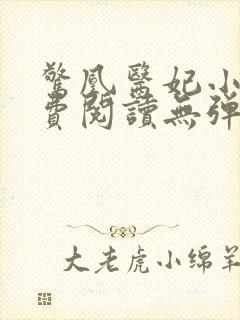 驚凰醫妃小
費閱讀無彈
大老虎小绵羊